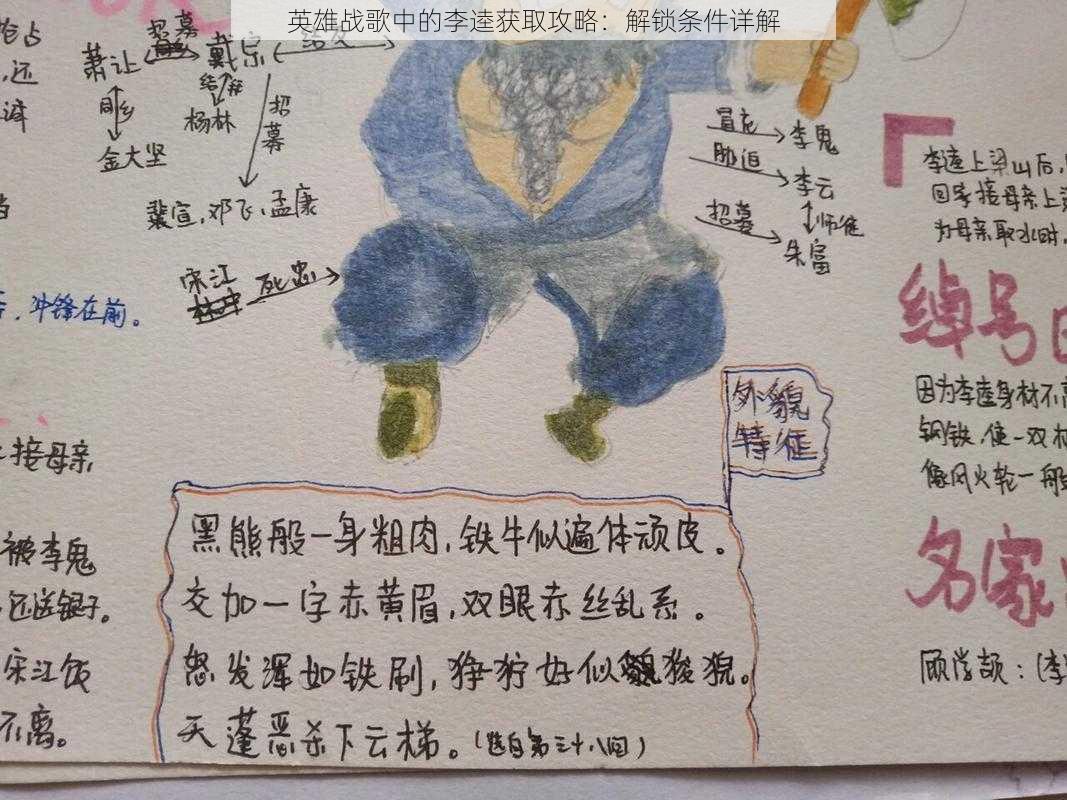 英雄战歌中的李逵获取攻略：解锁条件详解
抢占
，还
萧让
招募
戴宗
结交
同乡
结拜
杨林
金大坚
招募
裴宣，邓飞，孟康
宋江
死忠
冲锋在前。
冒充
李鬼
胁迫
李云
师徒
招募
朱富
李逵上梁山后，
回家接母亲上
为母亲取水时，
绰号
因为李逵身材不
钢铁，使一双
像风火轮一般
名家
顾学颉：(李
外貌
特征
黑熊般一身粗肉，铁牛似遍体顽皮。
交加一字赤黄眉，双眼赤丝乱系。
怒发浑如铁刷，狰狞好似狻猊。
天蓬恶杀下云梯。(选自第三十八回)
接母亲
被李鬼
还送银子。
宋江饭
不离。